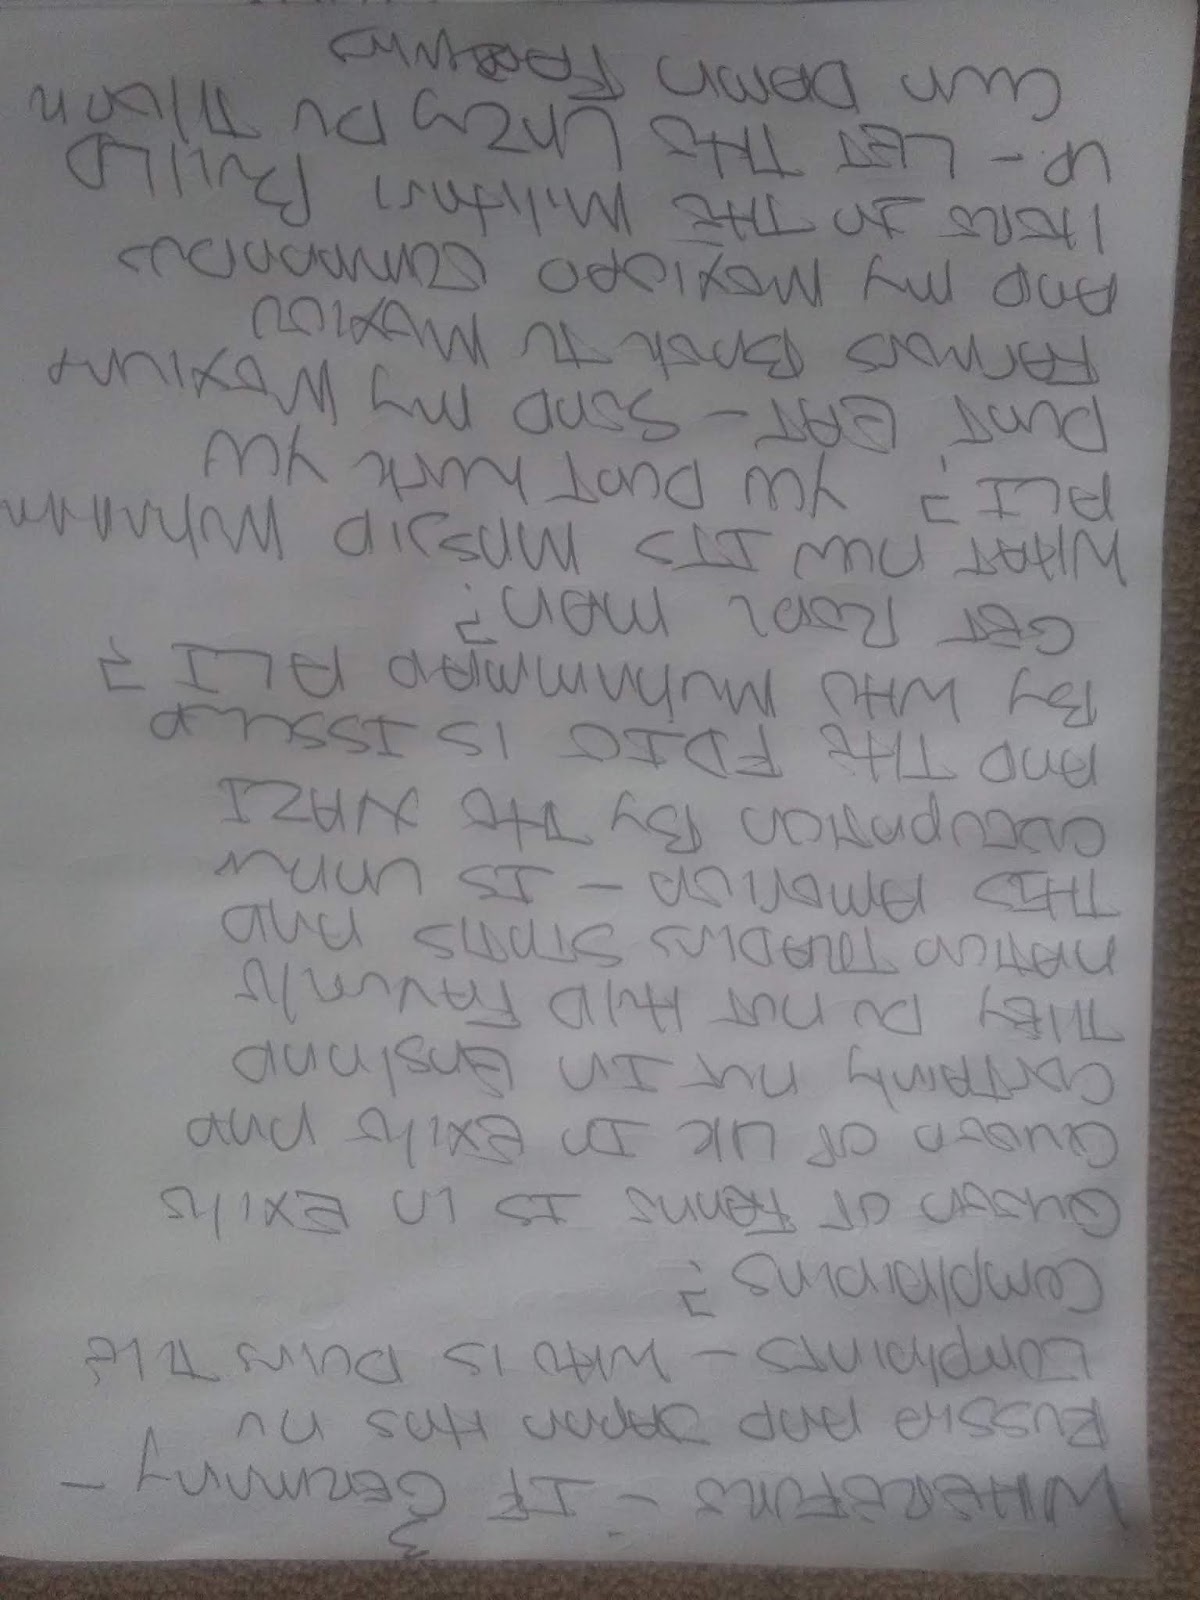 3
WHEREFORE - IF GERMANY -
RUSSIA AND JAPAN HAS NO
COMPLAINTS - WHO IS DOING THE
COMPLAINING?
QUEEN OF IS IN EXILE
QUEEN OF UK IN EXILE AND
CERTAINLY NOT IN ENGLAND
THEY DO NOT HOLD FAVORABLE
NATION STATUS AND
THIS AMERICA - IS UNDER
OCCUPATION BY THE NAZI
AND THE FDIC IS ISSUED
BY WHO MUHAMMAD ALI?
GET REAL MAN?
WHAT NOW ITS MUHAMMAD
ALI? YOU DONT WORK YOU
DONT EAT - SEND MY MEXICAN
FARMERS BACK TO MEXICO
AND MY MEXICAN COMMANDOS
HERE IN THE MILITARY BUILD
UP - LET THE LAZY DO THEIR
OWN DAMN FARMING